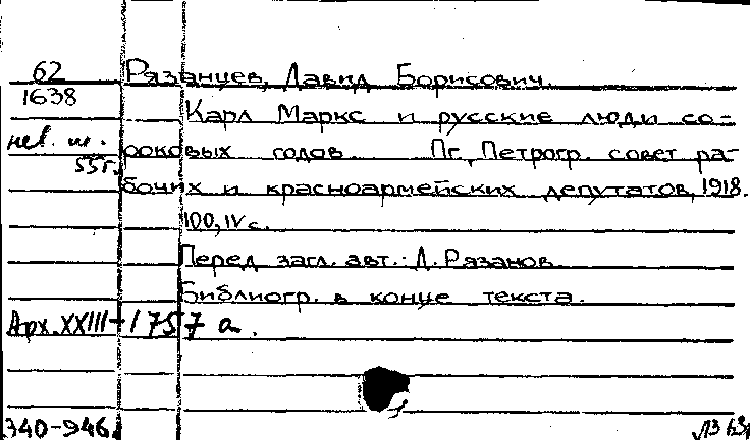 62 Рязанцев, Давид Борисович.
1638
Карл Маркс и русские люди со-
роковых годов. Пг., Петрогр. совет ра-
бочих и красноармейских депутатов, 1918.
100, IV с.
Перед загл. авт.: Д. Рязанов.
Библиогр. в конце текста.
55г.
Арх. XXIII-1757 а.
340-946